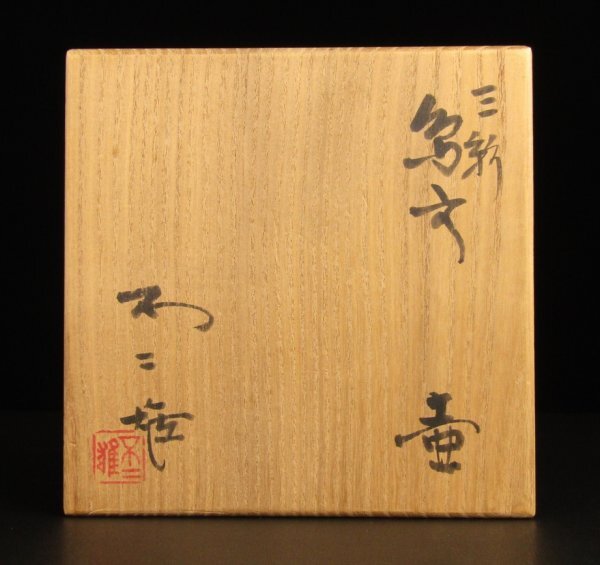 三彩
鳥文 壷
不二雄
不二
雄